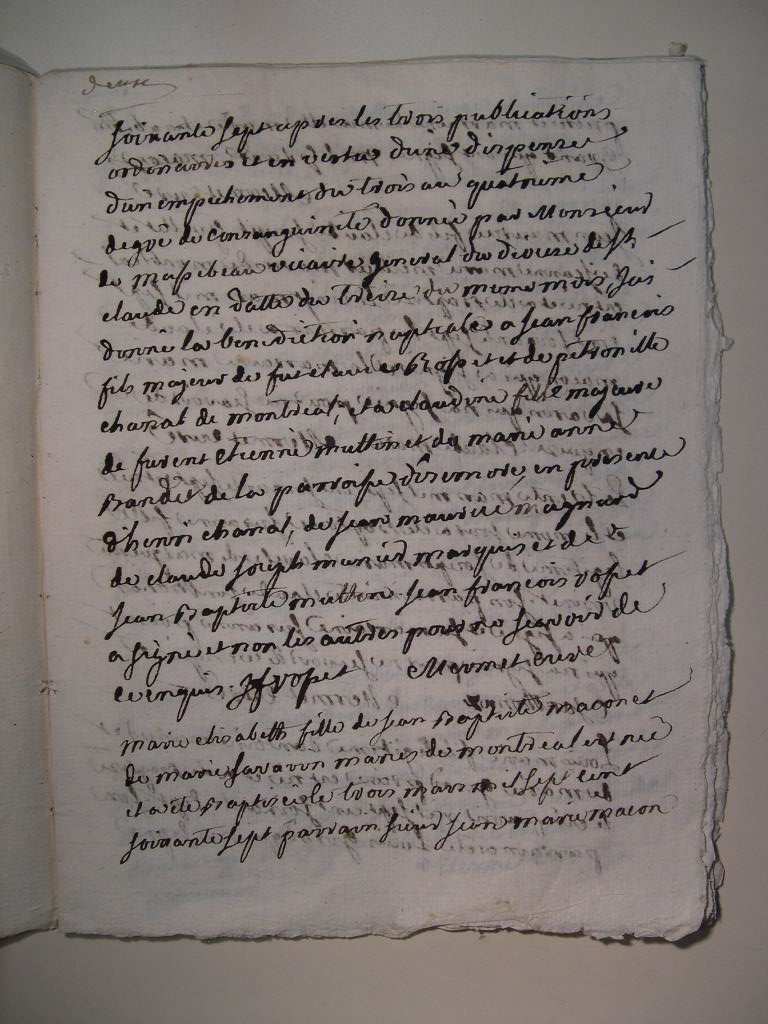 deuse
soixante sept apres les trois publications
ordinaires et en vertu d'une dispense
d'un empechement du trois au quatrieme
degré de consanguinité donnée par Monsieur
de vicaire general du diocese de St
claude en datte du treize du meme mois, J'ai
donné la benediction nuptiale a jean francois
fils majeur de fut claude Rosset et de petronille
chanal de montreal, et a claudine fille majeure
de furent etienne muttin et de marie anne
Bandet de la parroisse d'isernore, en presence
d'henri chanal, de jean maurice magnard
de claude joseph munier marquis et de
jean Baptiste muttin. jean francois rosset
a signé et non les autres pour ne scavoir de
ce enquis. Jf rosset Mermet curé
marie elisabeth fille de jean Baptiste maconet
de marie savarin maries de montreal est née
et a été Baptisée le trois mars mil sept cent
soixante sept parrain sieur jean marie macon